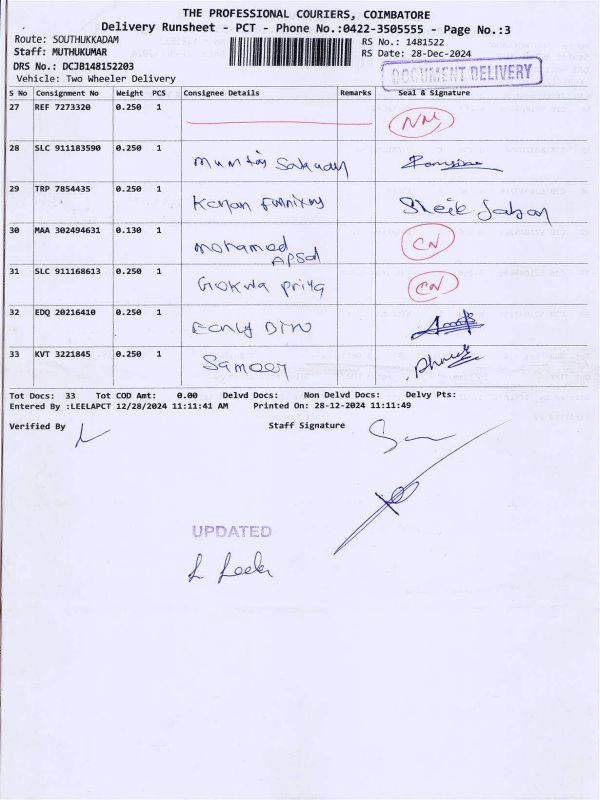 THE PROFESSIONAL COURIERS, COIMBATORE
Delivery Runsheet - PCT - Phone No.:0422-3505555 - Page No.:3
Route: SOUTHUKKADAM RS No.: 1481522
Staff: MUTHUKUMAR RS Date: 28-Dec-2024
DRS No.: DCJB148152203
Vehicle: Two Wheeler Delivery
DOCUMENT DELIVERY
S No Consignment No Weight PCS Consignee Details Remarks Seal & Signature
27 REF 7273320 0.250 1 NM
28 SLC 911183590 0.250 1 Mumtaj
29 TRP 7854435 0.250 1 Sheik
30 MAA 302494631 0.130 1 Mohamed Apsal CN
31 SLC 911168613 0.250 1 Priya CN
32 EDQ 20216410 0.250 1
33 KVT 3221845 0.250 1 Sameer
Tot Docs: 33 Tot COD Amt: 0.00 Delvd Docs: Non Delvd Docs: Delvy Pts:
Entered By :LEELAPCT 12/28/2024 11:11:41 AM Printed On: 28-12-2024 11:11:49
Verified By Staff Signature
UPDATED